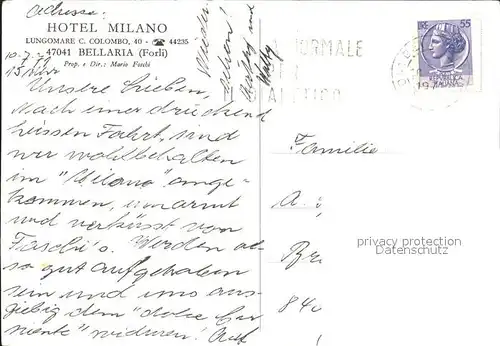 Adresse:
HOTEL MILANO
LUNGOMARE C. COLOMBO, 40 - ☎ 44235
47041 BELLARIA (Forlì)
Prop. e Dir.: Mario Foschi
10.7.
15 Uhr
Unsere Lieben,
Nach einer drückend
heissen Fahrt, sind
wir wohlbehalten
im "Milano" ange-
kommen, umarmt
und verküsst von
Foschi's. Werden al-
so gut aufgehoben
sein und uns aus-
giebig dem "dolce far
niente" widmen! Auf
Wieder-
sehen!
und
NORMALE
55
REPUBBLICA
ITALIANA
Familie
A.
Br
84
privacy protection
Datenschutz